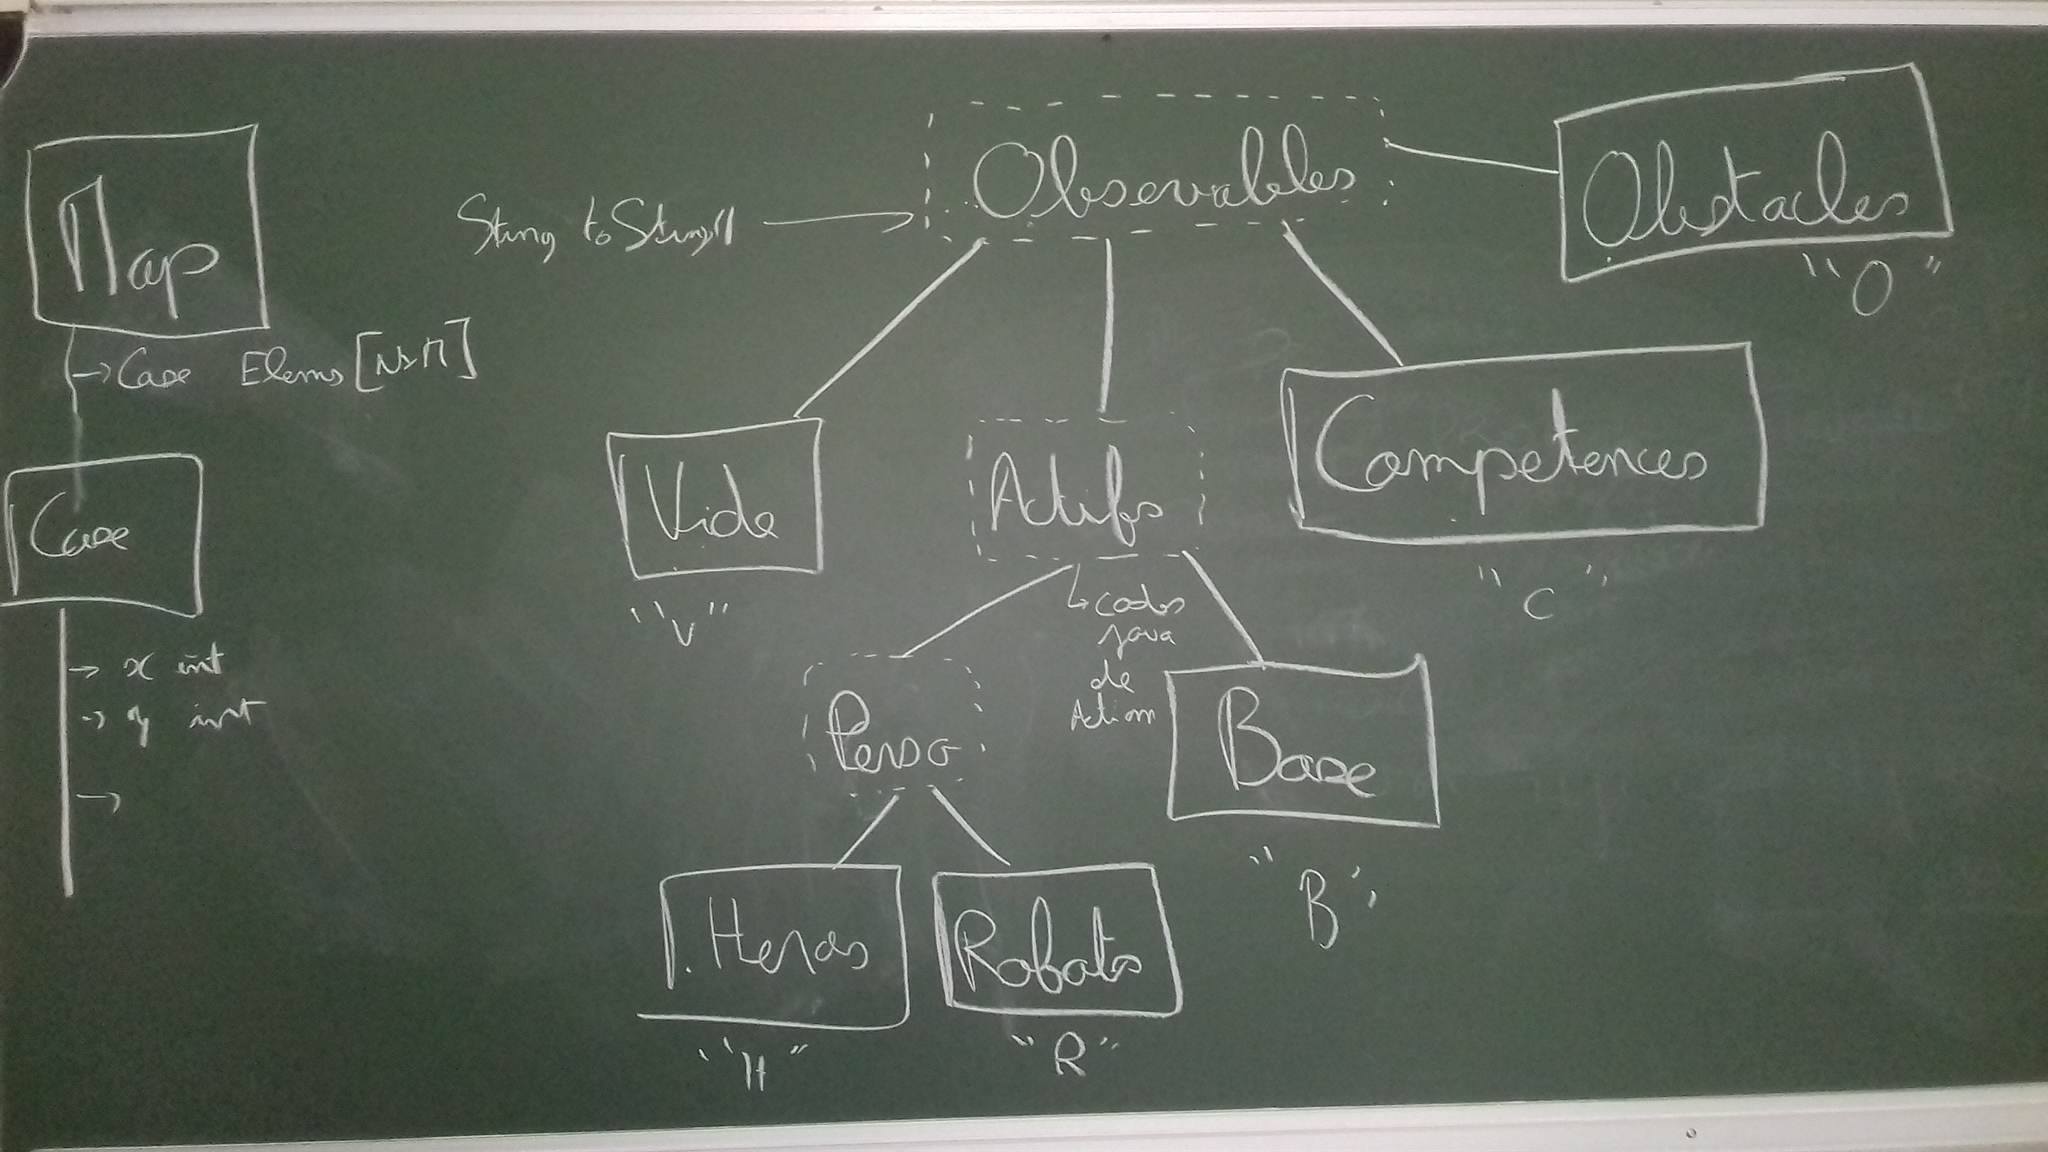 Map
→ Case Elems [N×M]
Case
→ x int
→ y int
→
String to String()
Observables
Obstacles
"O"
Vide
"V"
Actifs
↳ codes
java
de
Action
Competences
"C"
Perso
Base
"B"
Heros
"H"
Robots
"R"